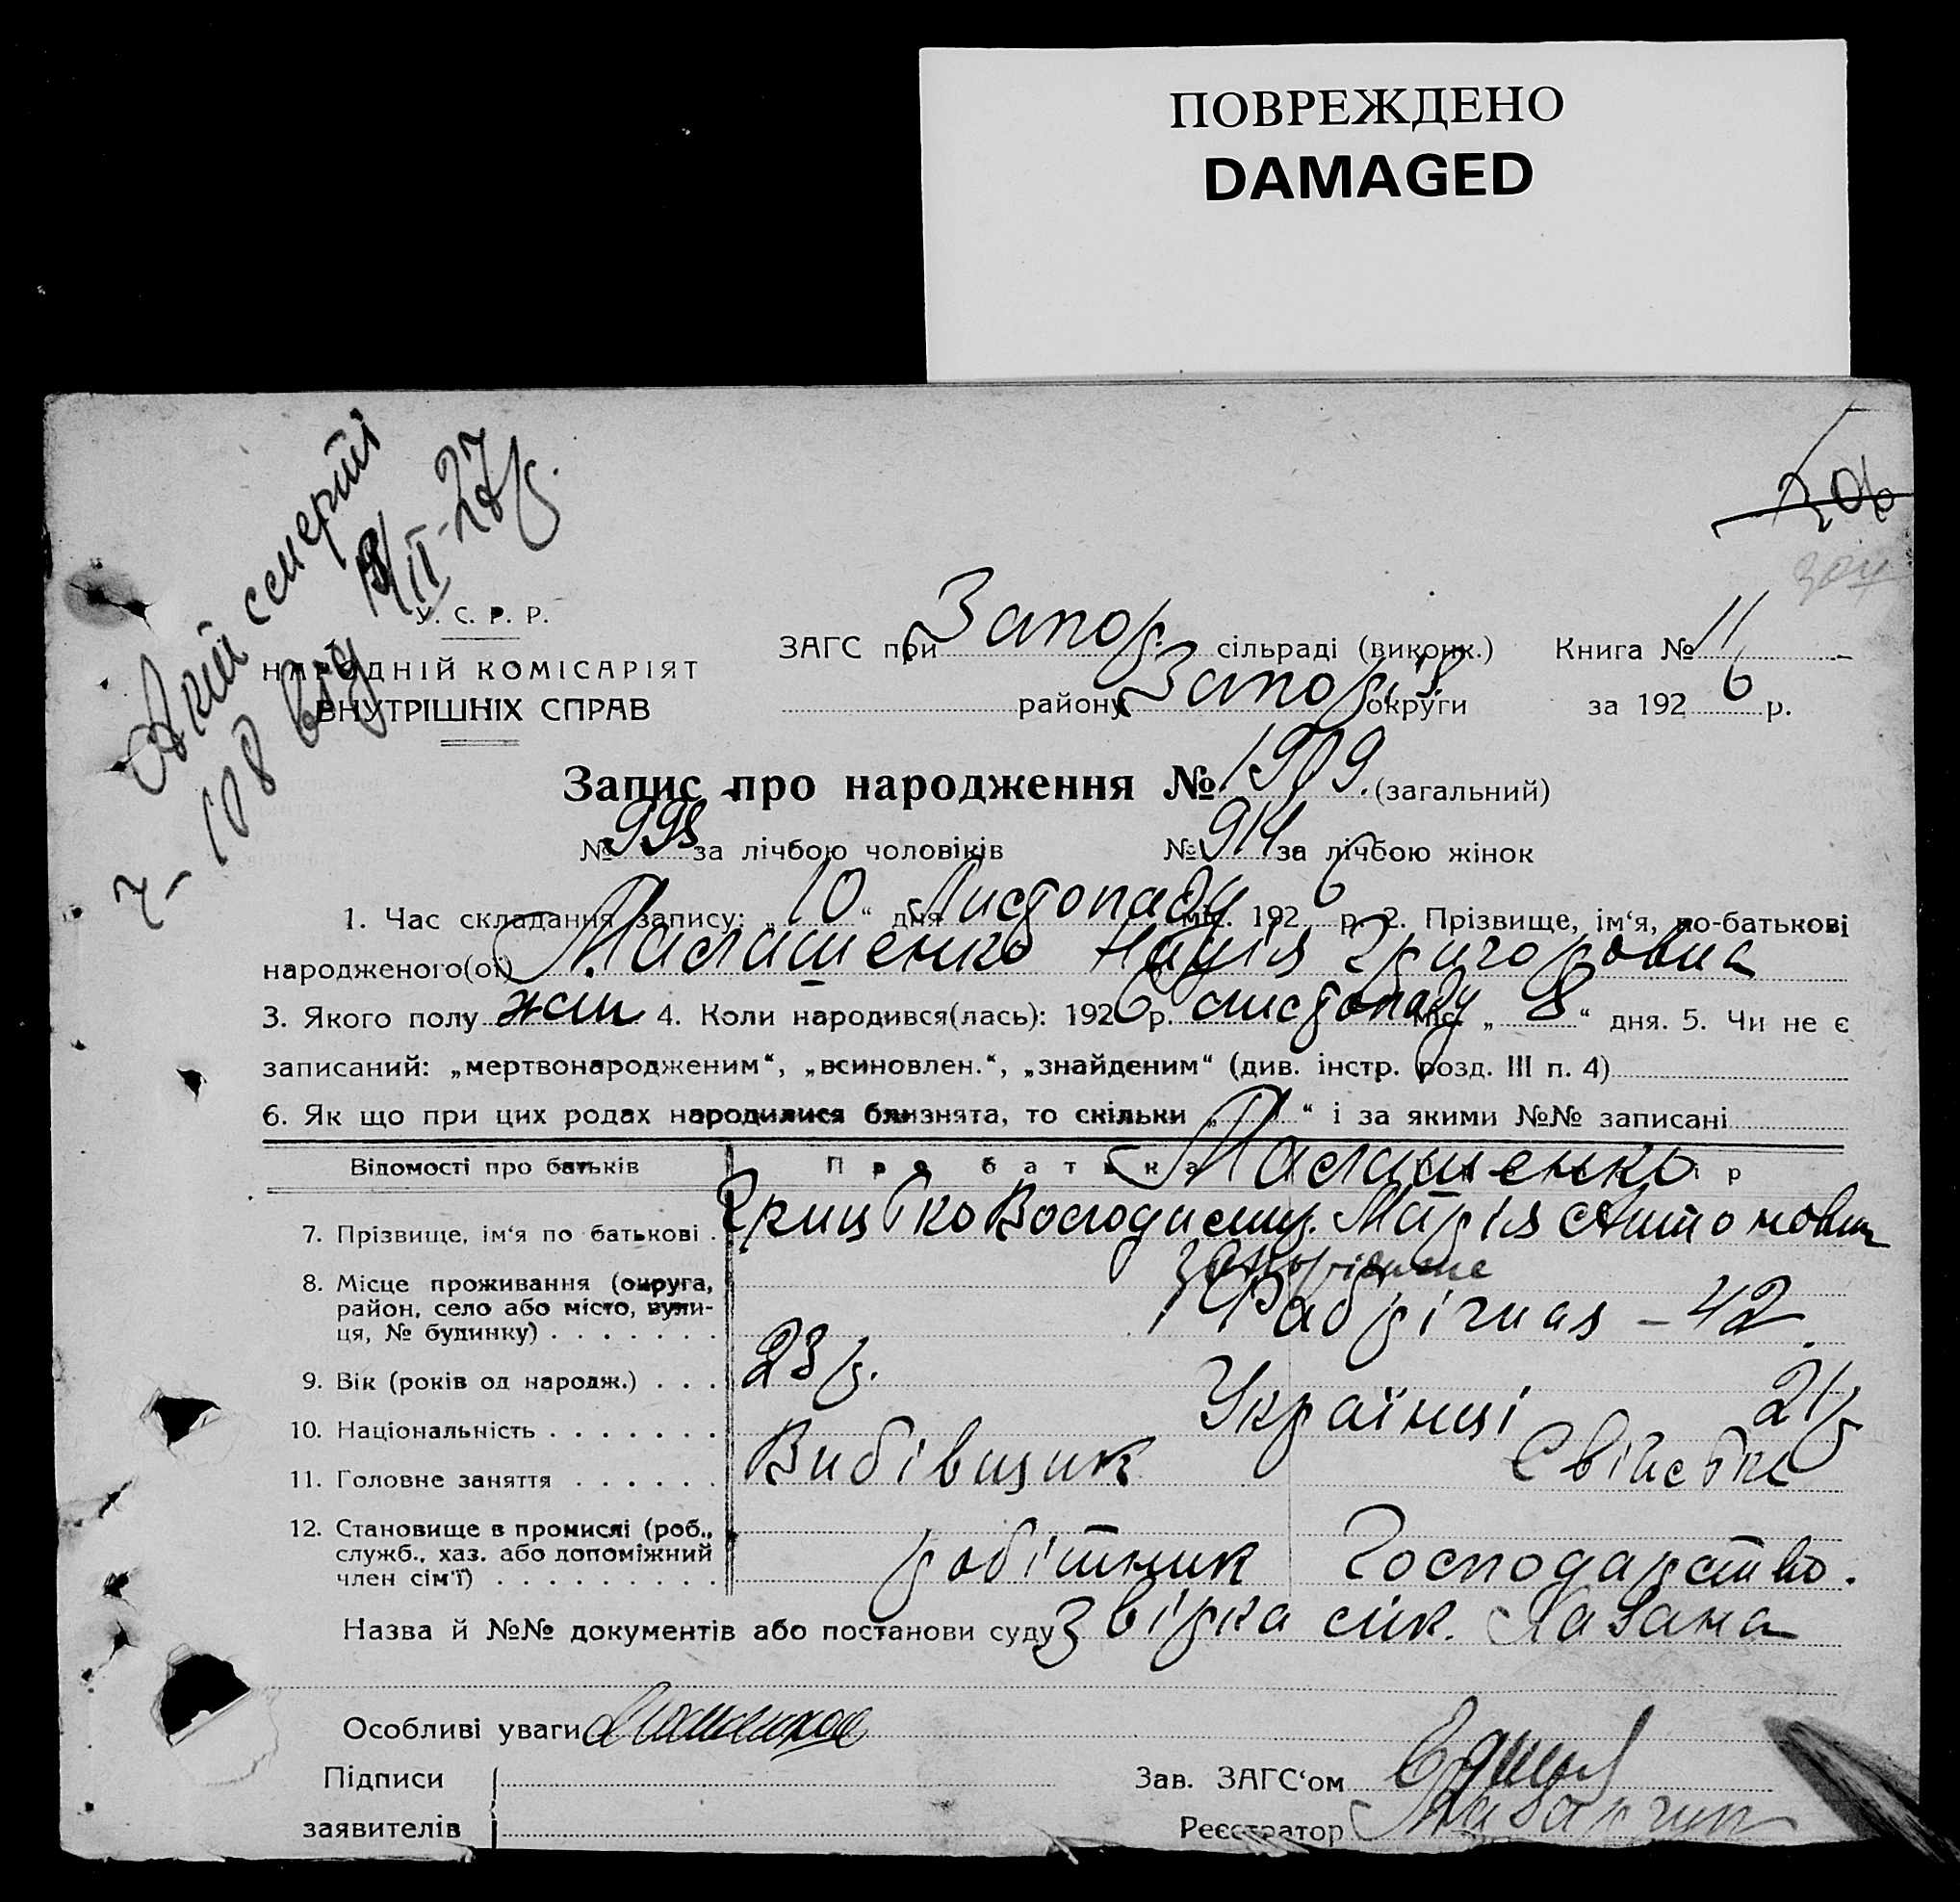 ПОВРЕЖДЕНО
DAMAGED
Акт смерті
ч – 108 від /II-27 р.
304
У. С. Р. Р.
НАРОДНІЙ КОМІСАРІЯТ
ВНУТРІШНІХ СПРАВ
ЗАГС при Запор. сільраді (виконк.) Книга № 11
району Запоріз округи за 1926 р.
Запис про народження № 1909. (загальний)
№ 995 за лічбою чоловіків № 914 за лічбою жінок
1. Час складання запису: „ 10 “ дня Листопаду міс. 1926 р. 2. Прізвище, ім‘я, по-батькові
народженого(ої) Малашенко Надія Григоровна
3. Якого полу жін 4. Коли народився(лась): 1926 р. листопаду міс. „ 8 “ дня. 5. Чи не є
записаний: „мертвонародженим“, „всиновлен.“, „знайденим“ (див. інстр. розд. III п. 4)
6. Як що при цих родах народилися близнята, то скільки „ “ і за якими №№ записані
Відомості про батьків Про батька Малашенко
7. Прізвище, ім‘я по батькові . Грицько Володимир. Марія Антоновна
8. Місце проживання (округа, район, село або місто, вулиця, № будинку) . . . . . . . Запоріжжє
Фабрічная – 42.
9. Вік (років од народж.) . . . 23 р. 21 р
10. Національність . . . . . . . Українці
11. Головне заняття . . . . . . Вибівщик Свійське
12. Становище в промислі (роб., служб., хаз. або допоміжний член сім'ї) . . . . . . . . . робітник Господарство.
Назва й №№ документів або постанови суду Звірка
Особливі уваги
Підписи Зав. ЗАГС‘ом
заявителів Реєстратор